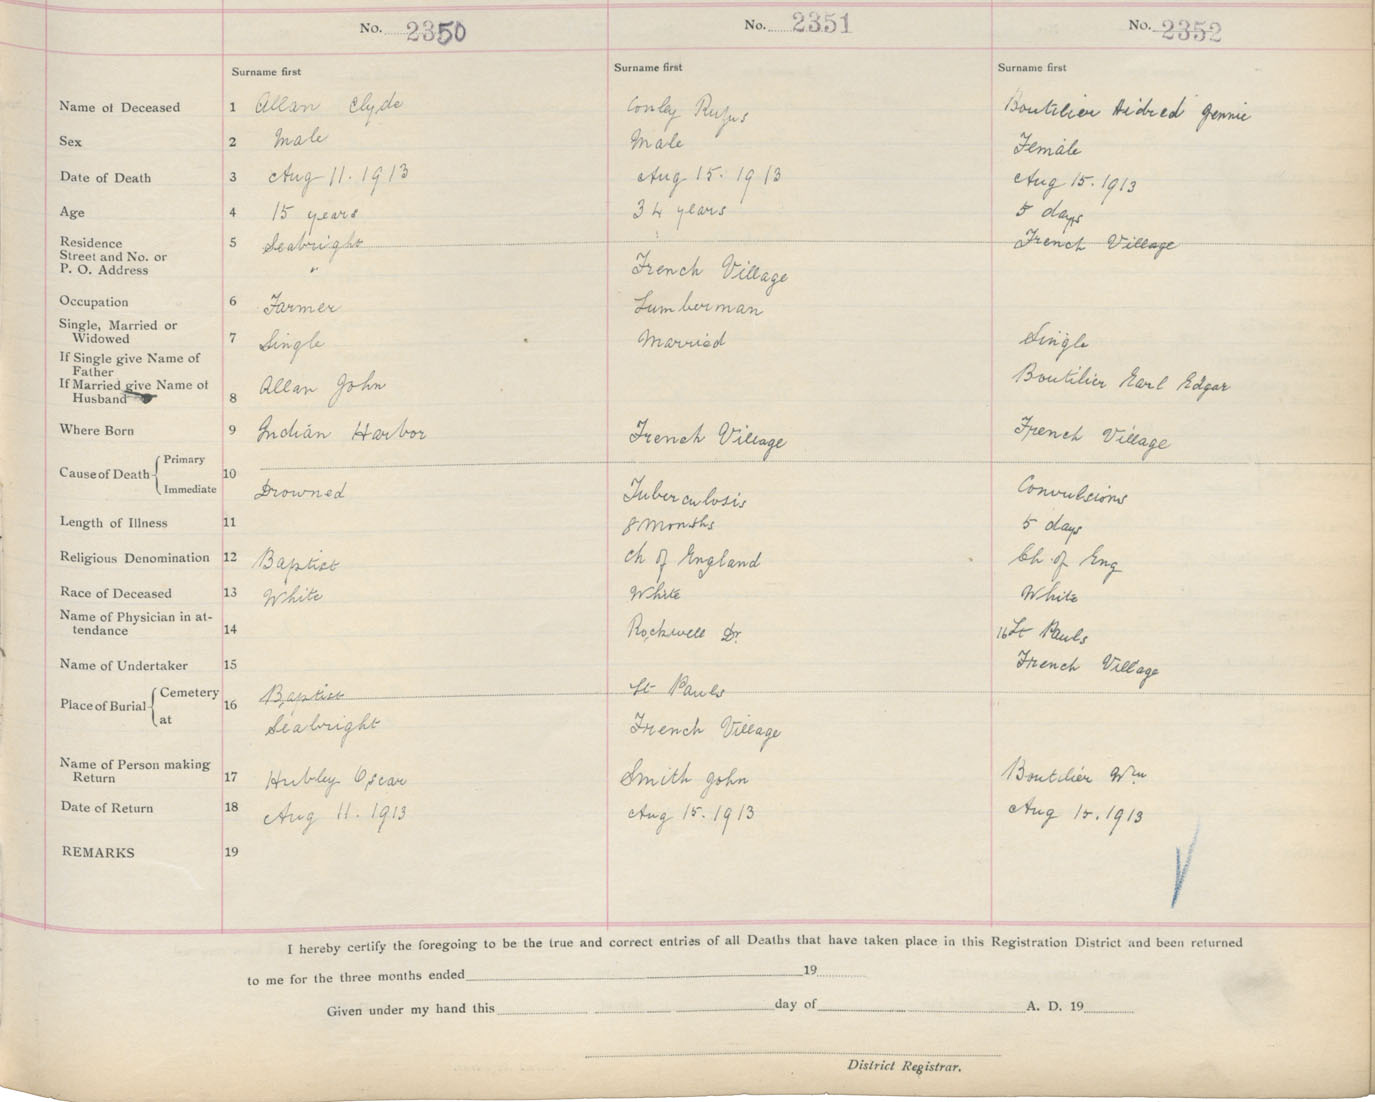 No. 2350 No. 2351 No. 2352
Surname first Surname first Surname first
Name of Deceased 1 Allan Clyde Conley Rufus Boutilier Hidred Jennie
Sex 2 Male Male Female
Date of Death 3 Aug 11. 1913 Aug 15. 1913 Aug 15. 1913
Age 4 15 years 34 years 5 days
Residence 5 Seabright French Village
Street and No. or
P. O. Address " French Village
Occupation 6 Farmer Lumberman
Single, Married or
Widowed 7 Single Married Single
If Single give Name of
Father
If Married give Name of Allan John Boutilier Earl Edgar
Husband 8
Where Born 9 Indian Harbor French Village French Village
Cause of Death Primary 10
Immediate Drowned Tuberculosis Convulsions
Length of Illness 11 8 months 5 days
Religious Denomination 12 Baptist Ch of England Ch. of Eng
Race of Deceased 13 White White White
Name of Physician in at-
tendance 14 Rockwell Dr. 16 St Pauls
Name of Undertaker 15 French Village
Place of Burial Cemetery 16 Baptist St Pauls
at Seabright French Village
Name of Person making
Return 17 Hubley Oscar Smith John Boutilier Wm
Date of Return 18 Aug 11. 1913 Aug 15. 1913 Aug 15. 1913
REMARKS 19
I hereby certify the foregoing to be the true and correct entries of all Deaths that have taken place in this Registration District and been returned
to me for the three months ended 19
Given under my hand this day of A. D. 19
District Registrar.